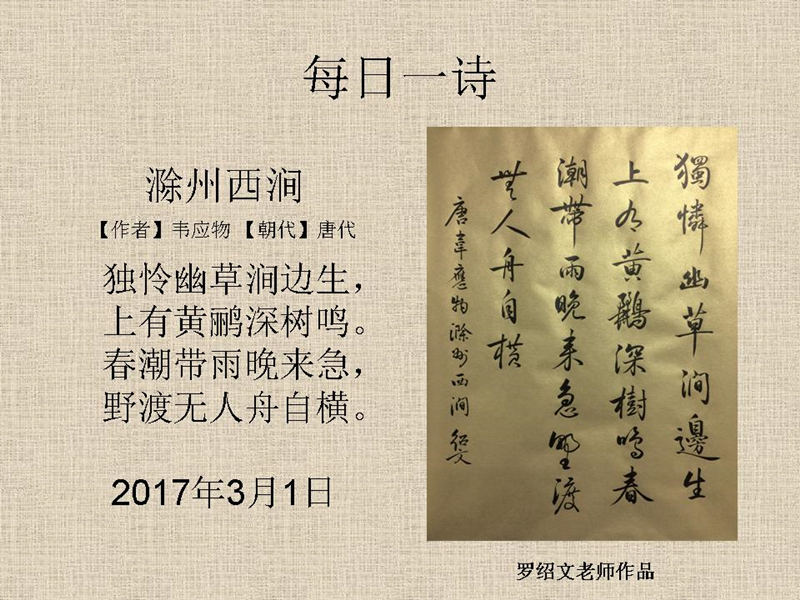 每日一诗
滁州西涧
【作者】韦应物 【朝代】唐代
独怜幽草涧边生，
上有黄鹂深树鸣。
春潮带雨晚来急，
野渡无人舟自横。
2017年3月1日
獨憐幽草澗邊生
上有黄鸝深樹鳴春
潮帶雨晚来急野渡
無人舟自横
唐韋應物滁州西澗 紹文
罗绍文老师作品